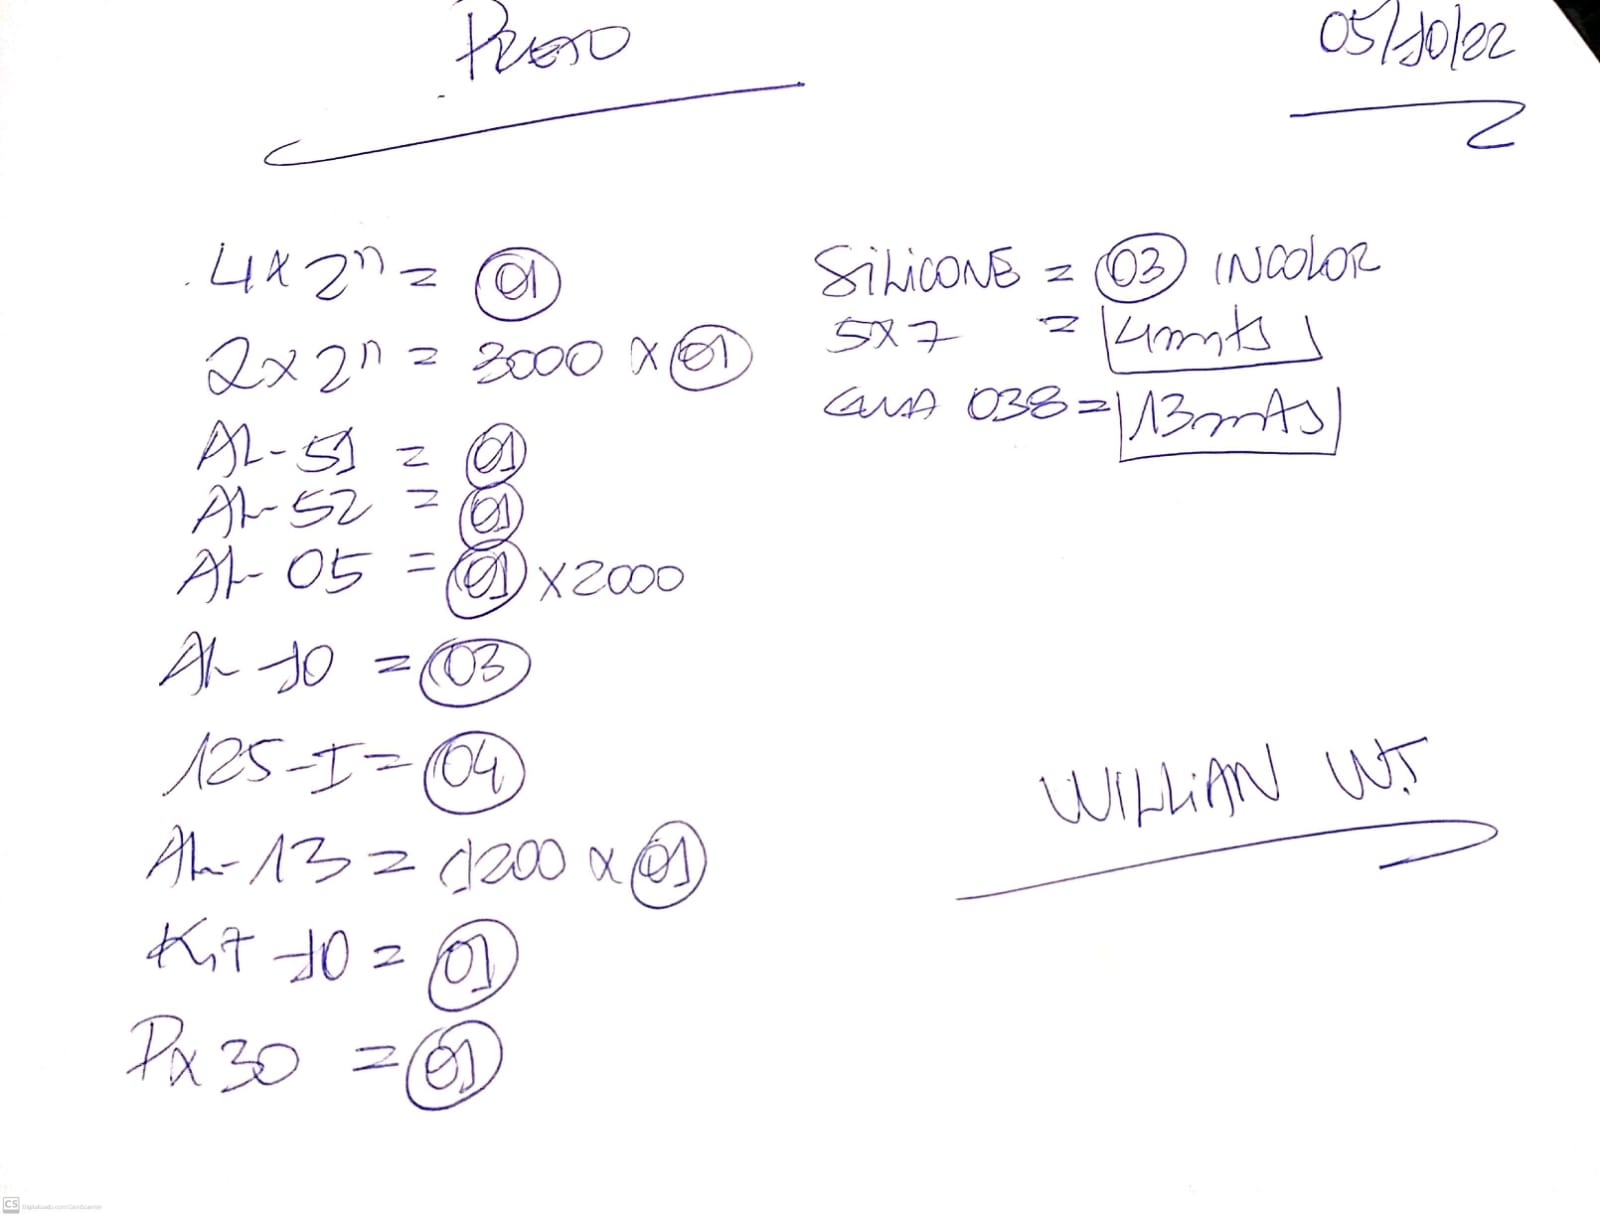 PRETO
05/10/22
4x2" = 01
2x2" = 3000 x 01
AL-51 = 01
AL-52 = 01
AL-05 = 01 x 2000
AL-10 = 03
125-I = 04
AL-13 = 1200 x 01
Kit 10 = 01
Px 30 = 01
SILICONE = 03 INCOLOR
5x7 = 4mts
038 = 13mts
WILLIAN W.T
CS Digitalizado com CamScanner